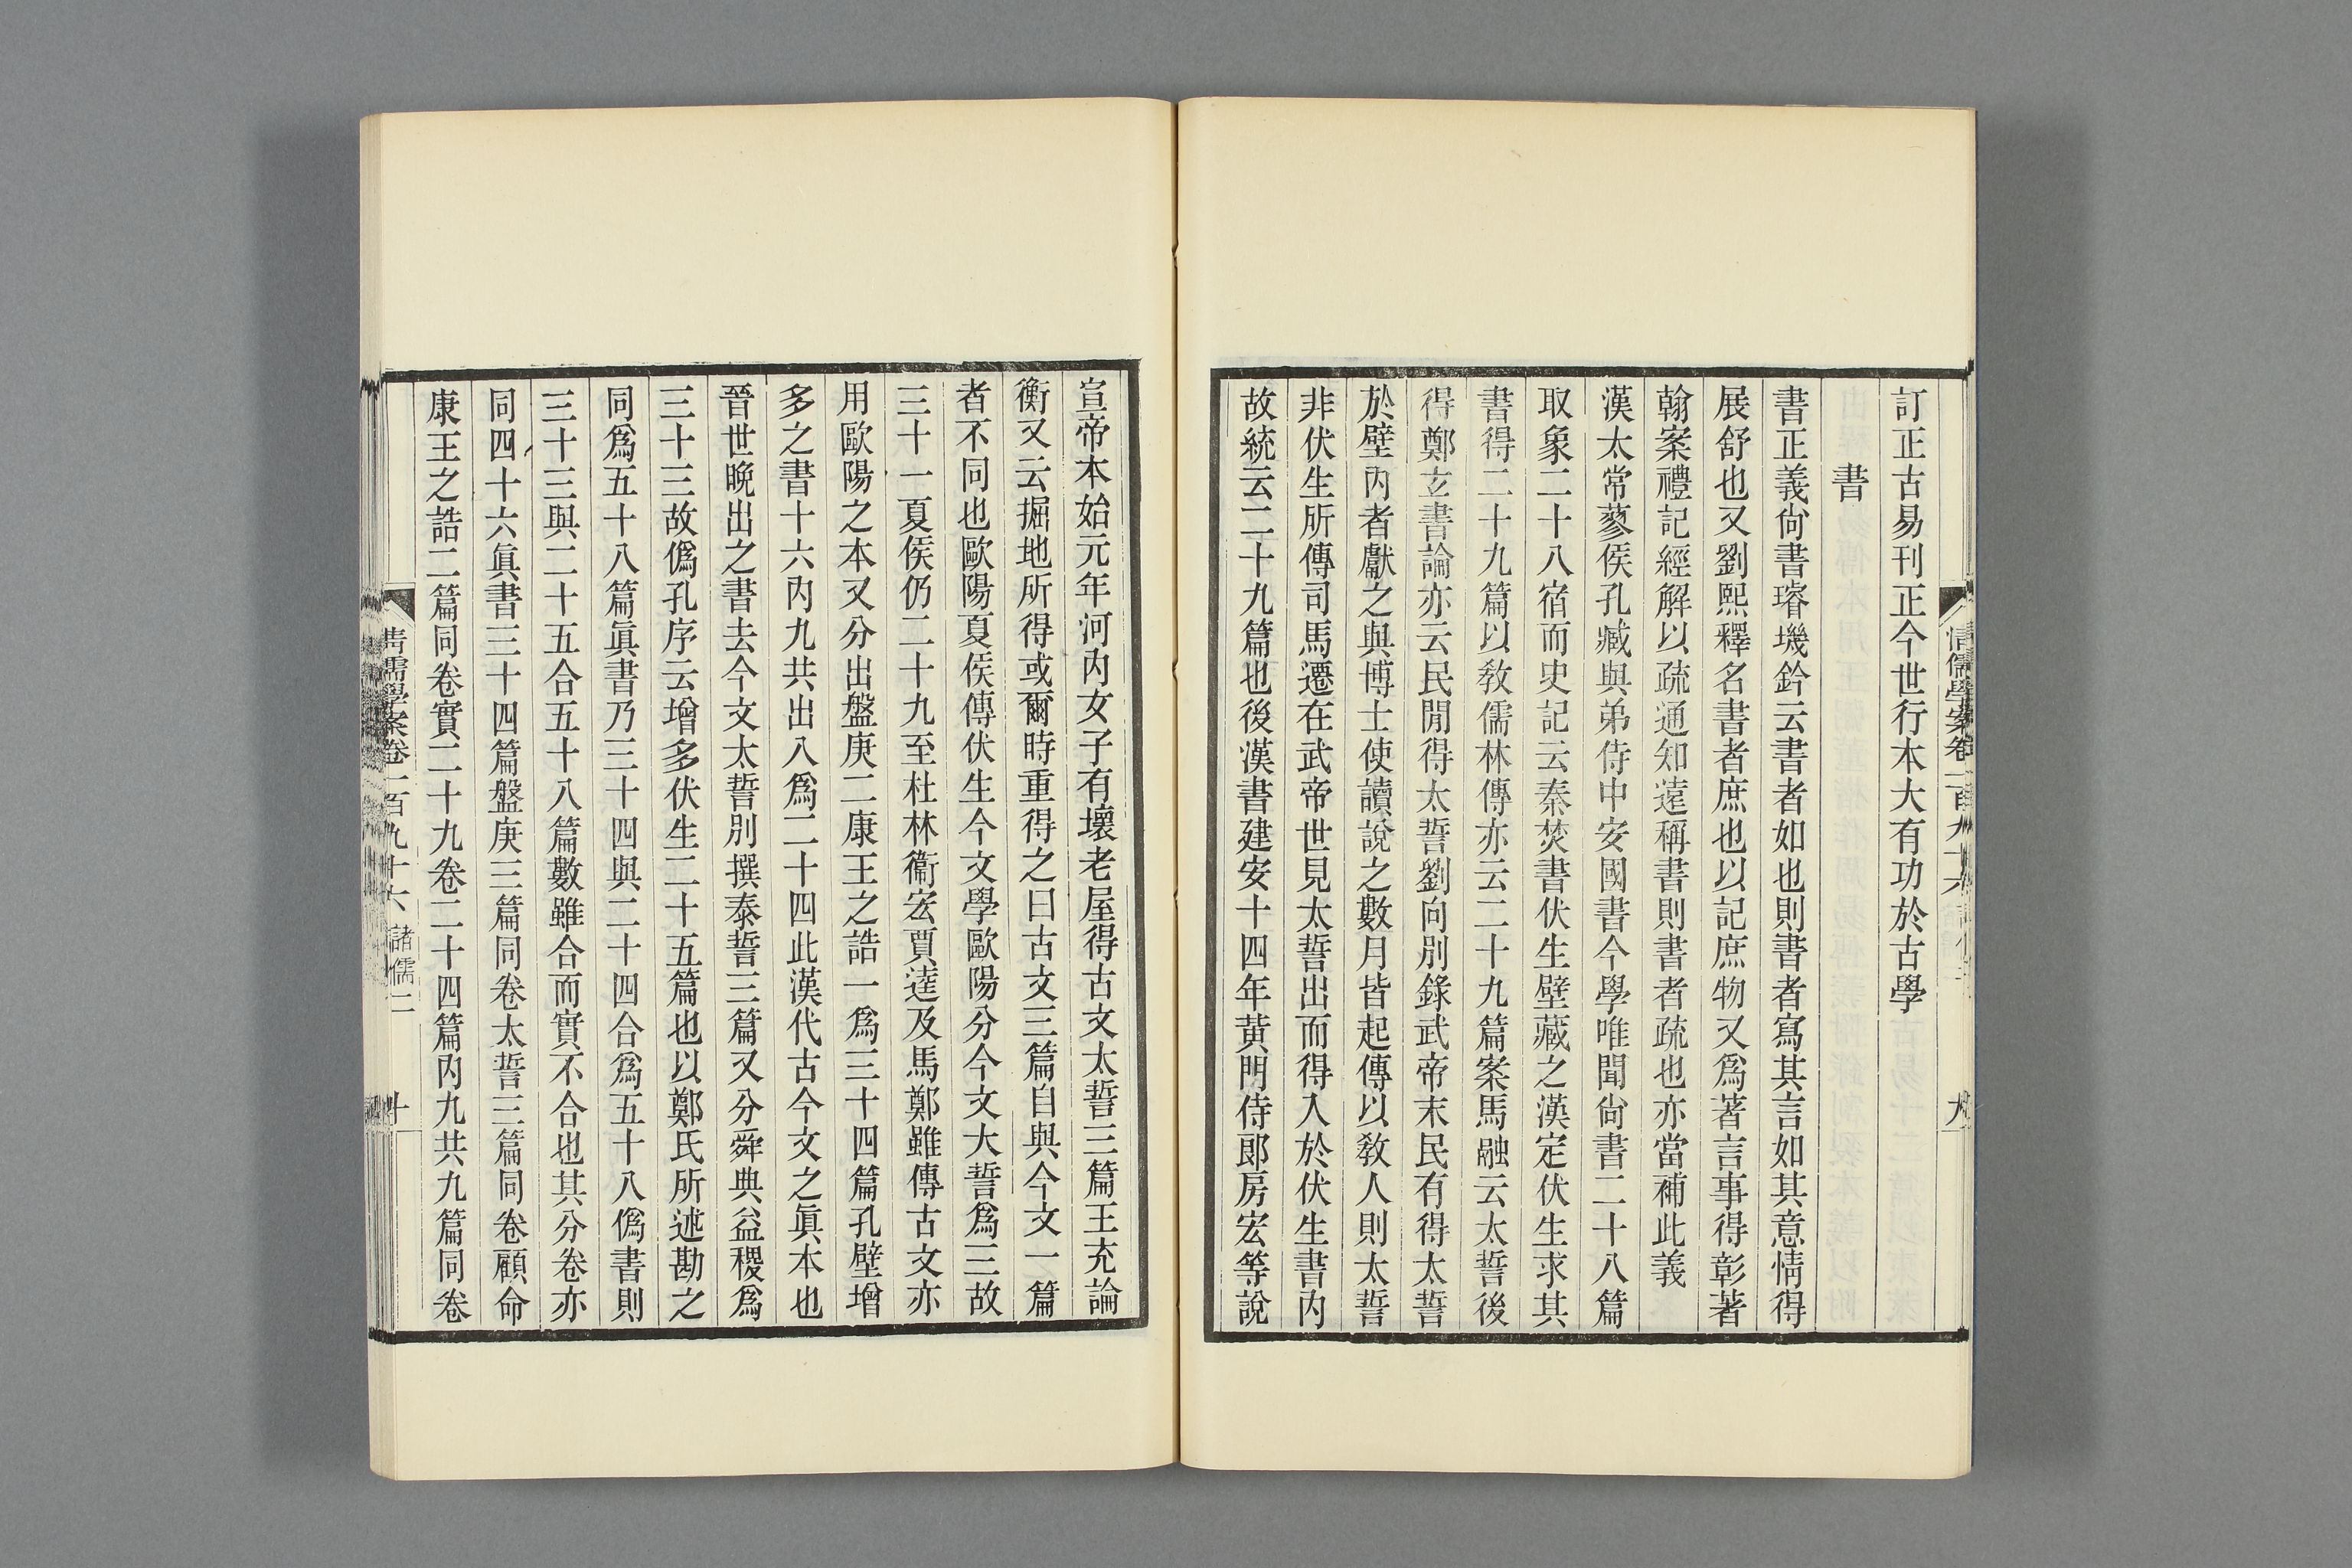 訂正古易刊正今世行本大有功於古學
書
書正義尙書璿璣鈐云書者如也則書者寫其言如其意情得
展舒也又劉熙釋名書者庶也以記庶物又爲著言事得彰著
翰案禮記經解以疏通知遠稱書則書者疏也亦當補此義
漢太常蓼侯孔臧與弟侍中安國書今學唯聞尙書二十八篇
取象二十八宿而史記云秦焚書伏生壁藏之漢定伏生求其
書得二十九篇以敎儒林傳亦云二十九篇案馬融云太誓後
得鄭玄書論亦云民閒得太誓劉向別錄武帝末民有得太誓
於壁內者獻之與博士使讀說之數月皆起傳以敎人則太誓
非伏生所傳司馬遷在武帝世見太誓出而得入於伏生書內
故統云二十九篇也後漢書建安十四年黃門侍郞房宏等說
宣帝本始元年河內女子有壞老屋得古文太誓三篇王充論
衡又云掘地所得或爾時重得之曰古文三篇自與今文一篇
者不同也歐陽夏侯傳伏生今文學歐陽分今文大誓爲三故
三十一夏侯仍二十九至杜林衞宏賈逵及馬鄭雖傳古文亦
用歐陽之本又分出盤庚二康王之誥一爲三十四篇孔壁增
多之書十六內九共出八爲二十四此漢代古今文之眞本也
晉世晚出之書去今文太誓別撰泰誓三篇又分舜典益稷爲
三十三故僞孔序云增多伏生二十五篇也以鄭氏所述勘之
同爲五十八篇眞書乃三十四與二十四合爲五十八僞書則
三十三與二十五合五十八篇數雖合而實不合也其分卷亦
同四十六眞書三十四篇盤庚三篇同卷太誓三篇同卷顧命
康王之誥二篇同卷實二十九卷二十四篇內九共九篇同卷
清儒學案卷一百九十六 諸儒二 十